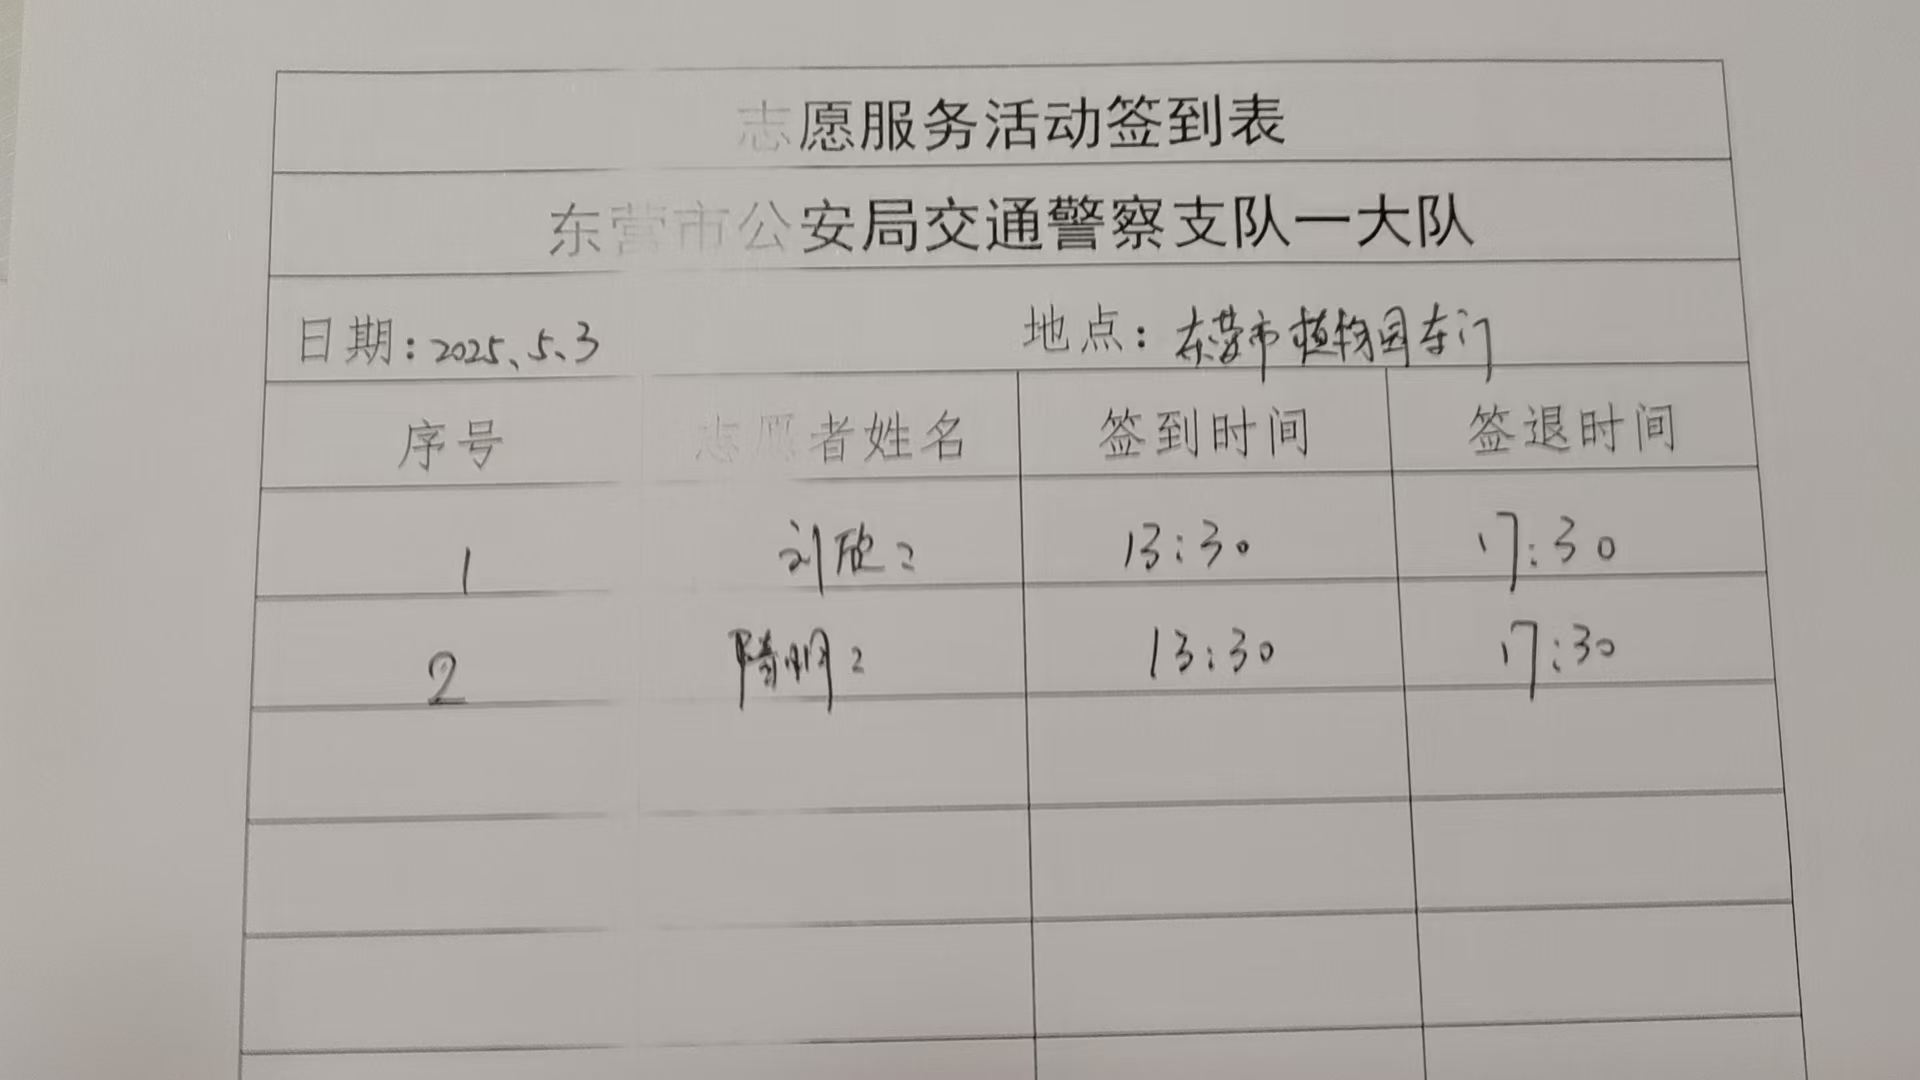 志愿服务活动签到表
东营市公安局交通警察支队一大队
日期:2025.5.3 地点:东营市植物园东门
序号 志愿者姓名 签到时间 签退时间
1 刘欣 13:30 17:30
2 13:30 17:30